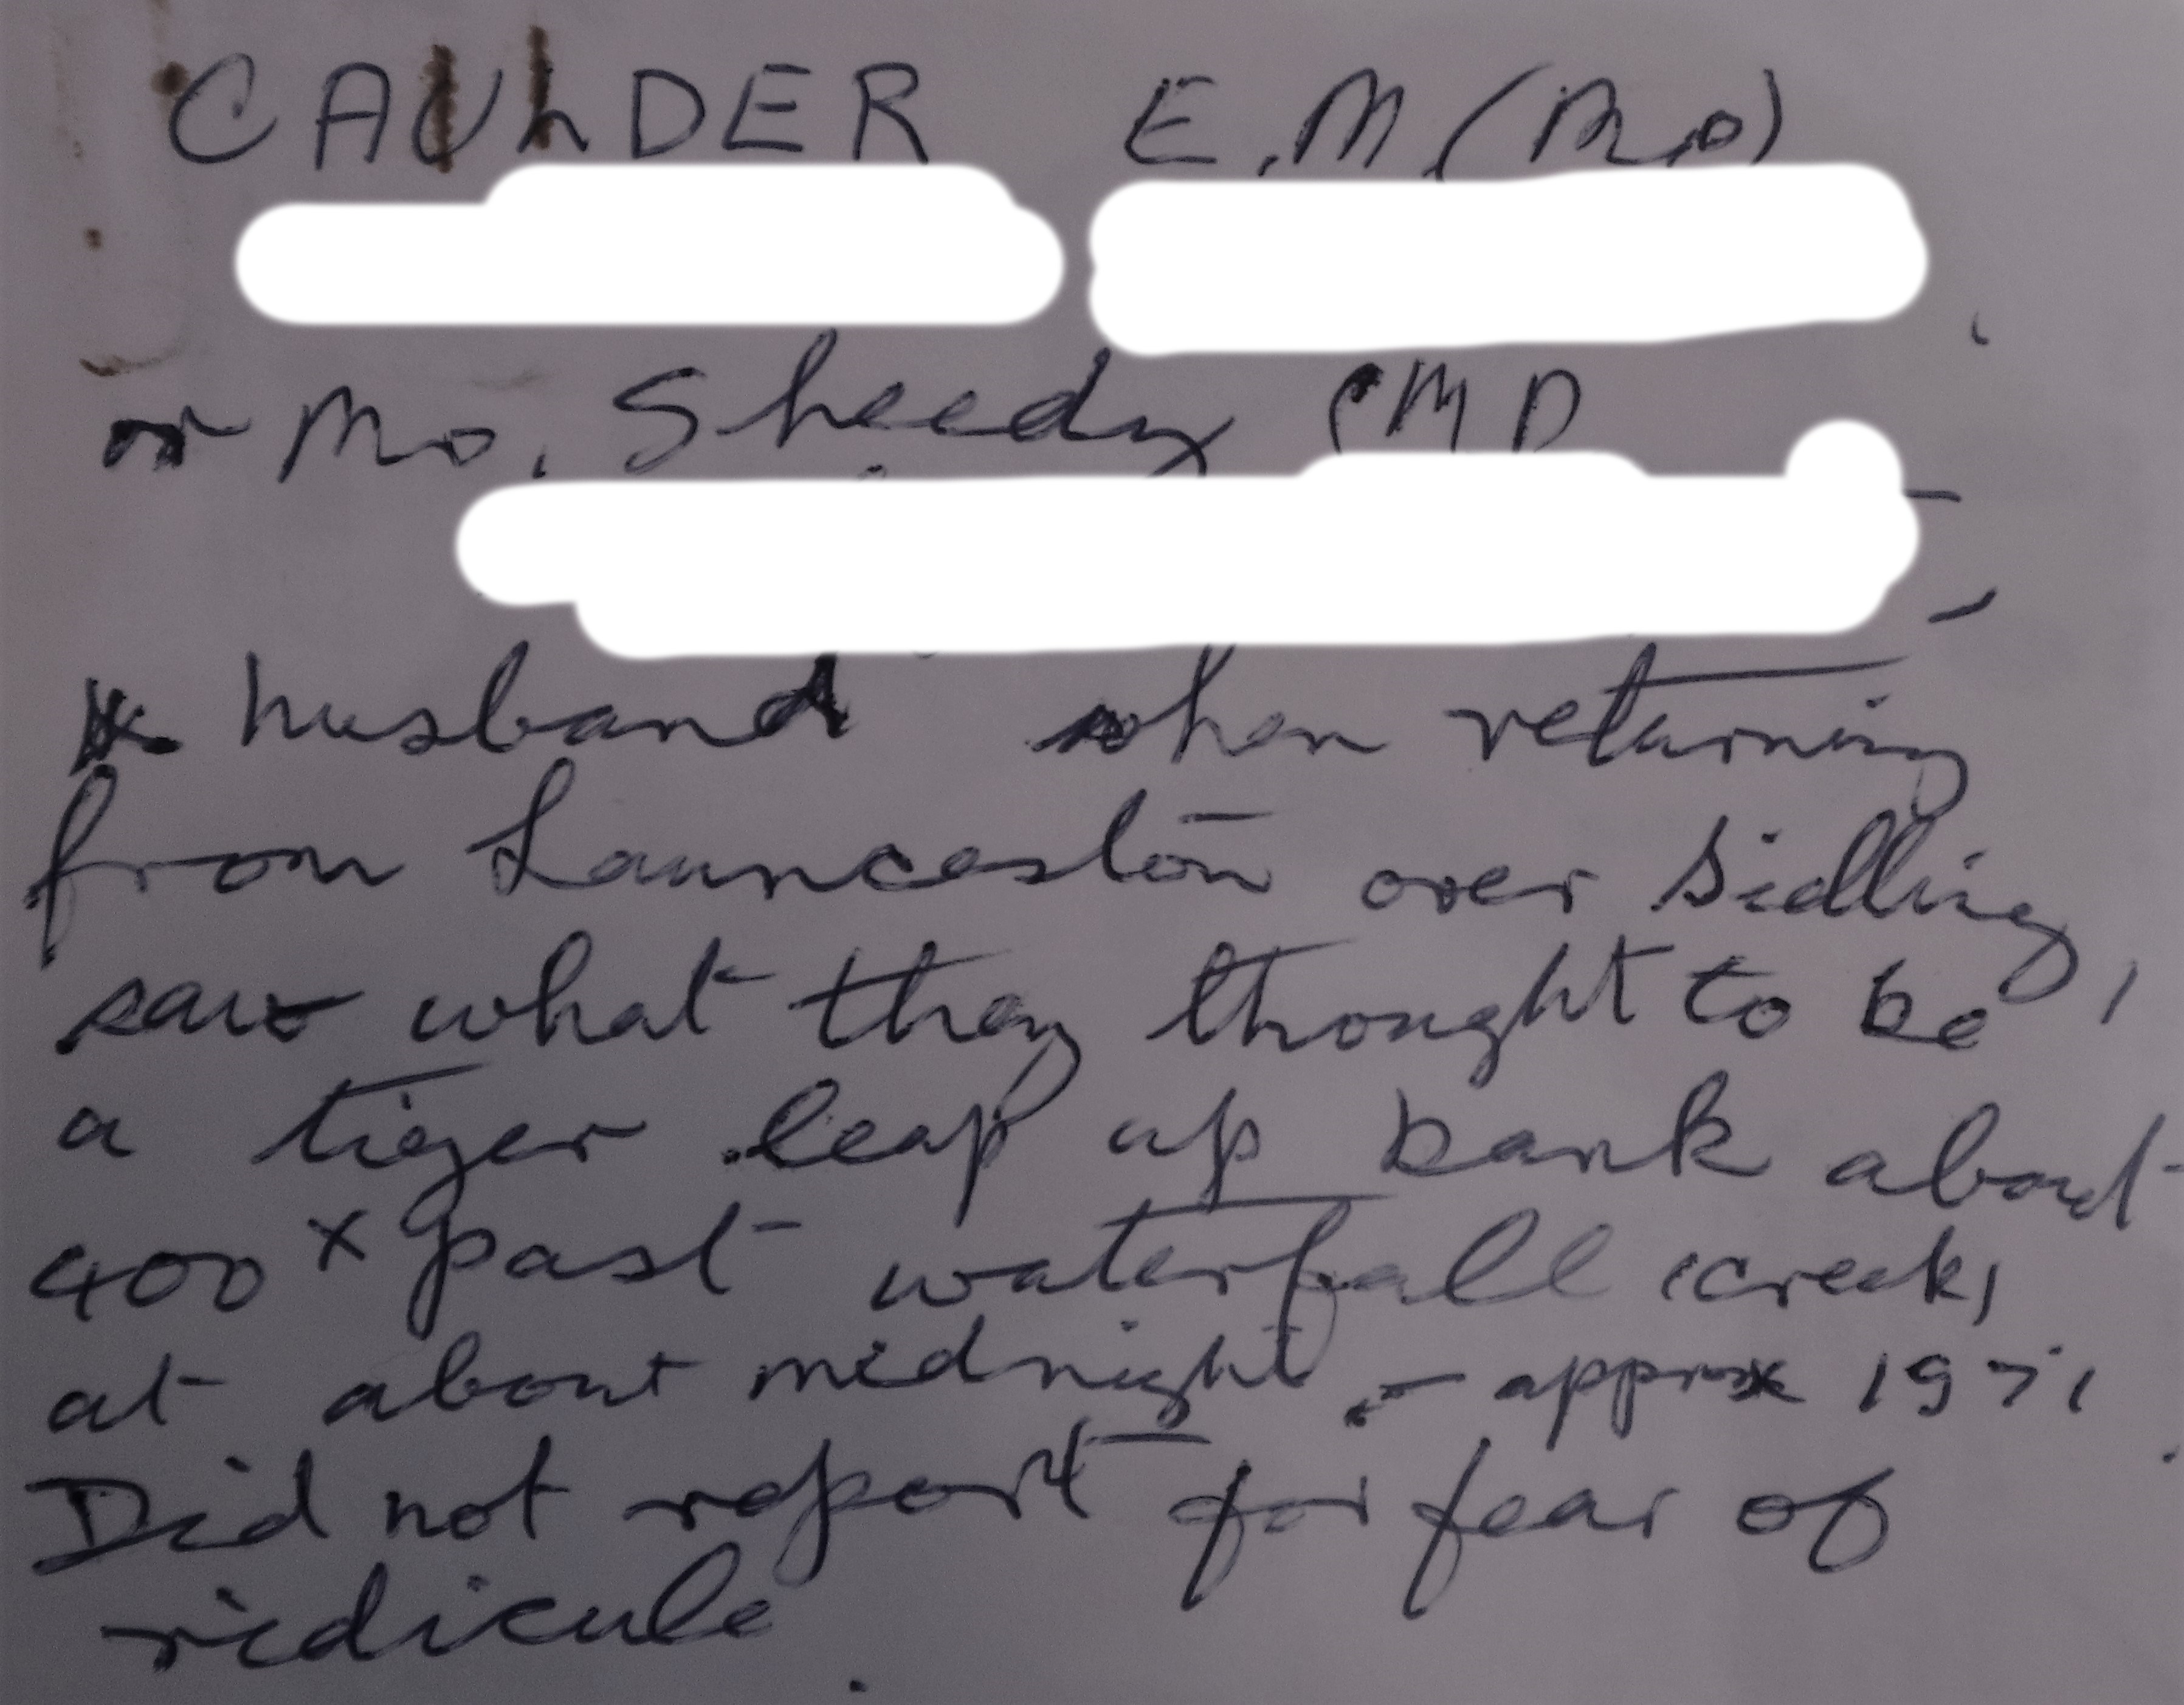 CAULDER E.M (Mrs)
or Mrs. Sheedy PMD
& husband when returning
from Launceston over Sidling,
saw what they thought to be
a tiger leap up bank about
400x past waterfall creek,
at about midnight - approx 1971
Did not report for fear of
ridicule.